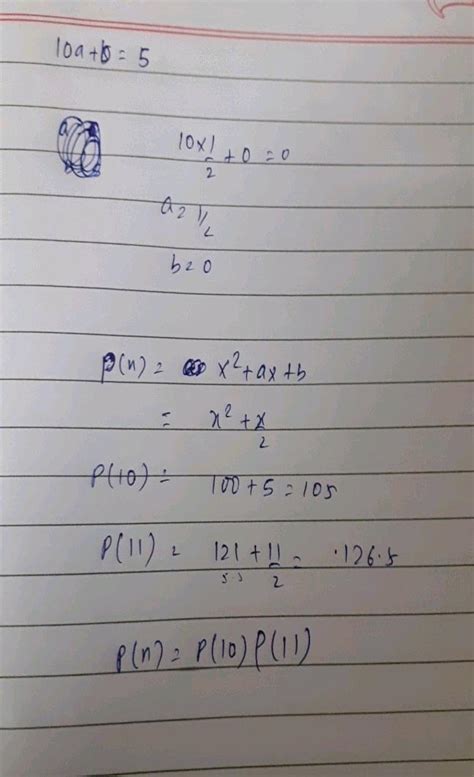 10a+b = 5
10×1/2 + 0 = 0
a = 1/2
b = 0
P(n) = x²+ax+b
= x² + x/2
P(10) = 100 + 5 = 105
P(11) = 121 + 11/2 = ·126·5
P(n) = P(10) P(11)